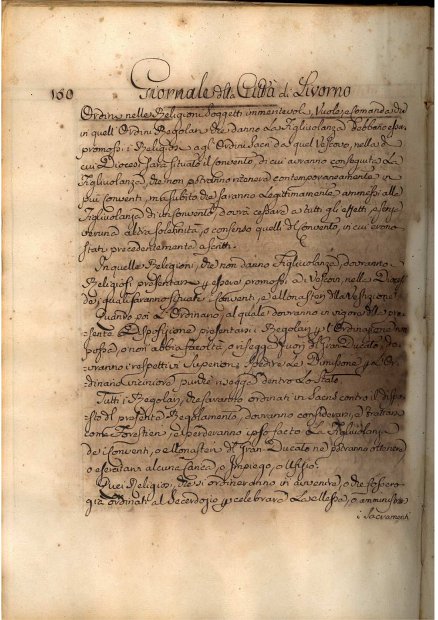 150 Giornale della Città di Livorno
Ordini nelle Religioni Soggetti immeritevoli, Vuole, e comanda, che
in quell'Ordini Regolari, che danno La Figliuolanza debbano essere
promossi i Religiosi agl'Ordini Sacri da quel Vescovo, nella di
cui Diocesi Sarà situato il Convento, di cui avranno conseguita La
Figliuolanza, che non potranno ritenere contemporaneamente in
più conventi, mà subito che saranno Legittimamente ammessi alla
Figliuolanza di un Convento dovrà cessare a tutti gl'effetti, e senza
veruna altra solennità, o consenso quella del Convento, in cui erono
stati precedentemente ascritti.
In quelle Religioni, che non danno Figliuolanza, dovranno i
Religiosi presentarsi, ed essere promossi da Vescovi nella Diocesi
de quali saranno situati i Conventi, e Monasteri della Vestizione.
Quando poi L'Ordinario, al quale dovranno in vigore della pre-
sente Disposizione presentarsi i Regolari per l'Ordinazione non
possa, o non abbia facoltà, o risegga fuori del Gran Ducato, do-
vranno i respettivi Superiori chiedere Le Dimissorie per l'Or-
dinario viciniore, purche risegga dentro Lo Stato.
Tutti i Regolari, che saranno ordinati in Sacris contro il dispo-
sto del presente Regolamento, dovranno considerarsi, e trattarsi
come Forestieri, e perderanno ipso facto La Figliuolanza
de' Conventi, e Monasteri del Gran Ducato, ne potranno ottenere,
o esercitare alcuna Carica, o Impiego, o Ufizio.
Quei Religiosi, che si ordineranno in avvenire, o che fossero
già ordinati al Sacerdozio per celebrare La Messa, o amministrare
i Sacramenti